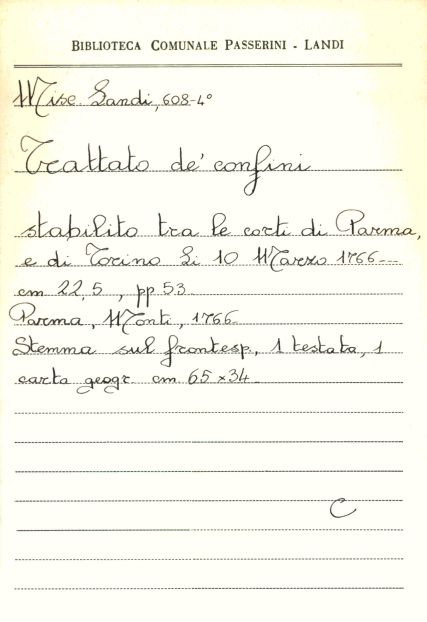 BIBLIOTECA COMUNALE PASSERINI - LANDI
Misc. Landi, 608-4°
Trattato de' confini
stabilito tra le corti di Parma,
e di Torino li 10 Marzo 1766---
cm 22,5, pp 53
Parma, Monti, 1766
Stemma sul frontesp., 1 testata, 1
carta geogr. cm. 65 x 34
C